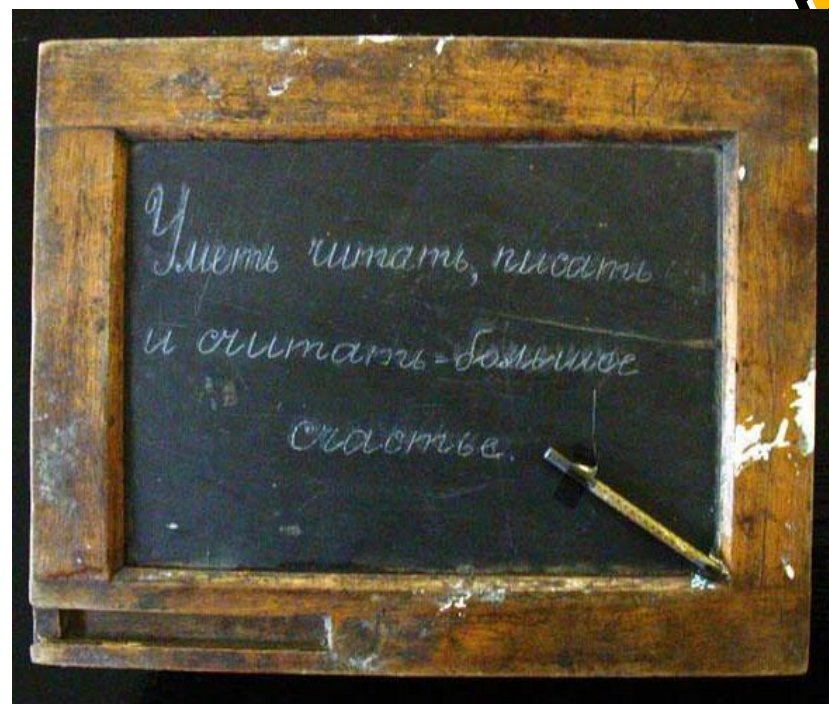 Уметь читать, писать
и считать - большое
счастье.